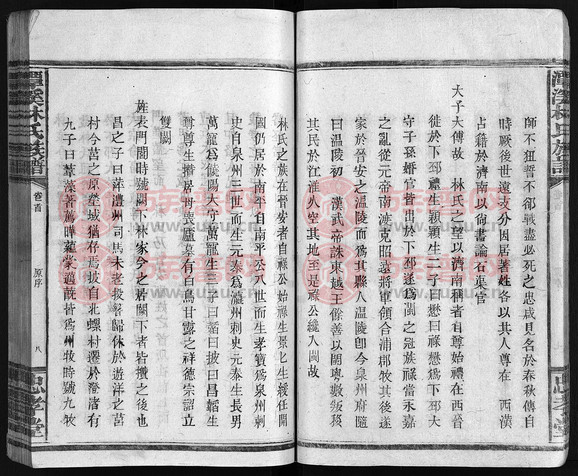 師不狃誓不卻戰盡必死之忠咸見名於春秋傳自
時厥後世遠支分因居著姓各以其人尊在　西漢
占籍於濟南以尚書論石渠官
大子太傅故　林氏之望以濟南稱者自尊始禮在西晉
徙於下邳禮生穎穎生二子曰懋曰祿懋爲下邳大
守子孫婚官皆出於下邳遂爲閩之冠族祿當永嘉
之亂從元帝南渡克昭遠將軍領合浦郡牧其後遂
家於晉安之溫陵而爲其縣人溫陵卽今泉州府隨
曰溫陵初　漢武帝誅東越王餘善以閩粤數叛移
其民於江淮人空其地至是祿公纔入閩故
林氏之族在晉安者自祿公始祿生景景生綏在開
國仍居於南平自南平公八世而生孝寶爲泉州刺
史自泉州三世而生元泰爲瀛州刺史元泰生長男
萬寵爲饒陽太守萬寵生三子曰韜曰披曰昌韜生
尊尊生攢居丹喪廬墓有白烏甘露之祥德宗詔立
雙闕
旌表門閭時號闕下林家今之居闕下者皆攢之後也
昌之子曰萍澧州司馬未老投簪歸休於遊洋之
村今莒之原墓域猶存焉披自北螺村遷於澄渚有
九子曰葦藻著薦曄蘊蒙邁蔇皆爲州牧時號九牧
潭溪林氏族譜
卷首
原序
八
忠孝堂
潭溪林氏族譜
忠孝堂
族譜網
www.yuzuu.cn